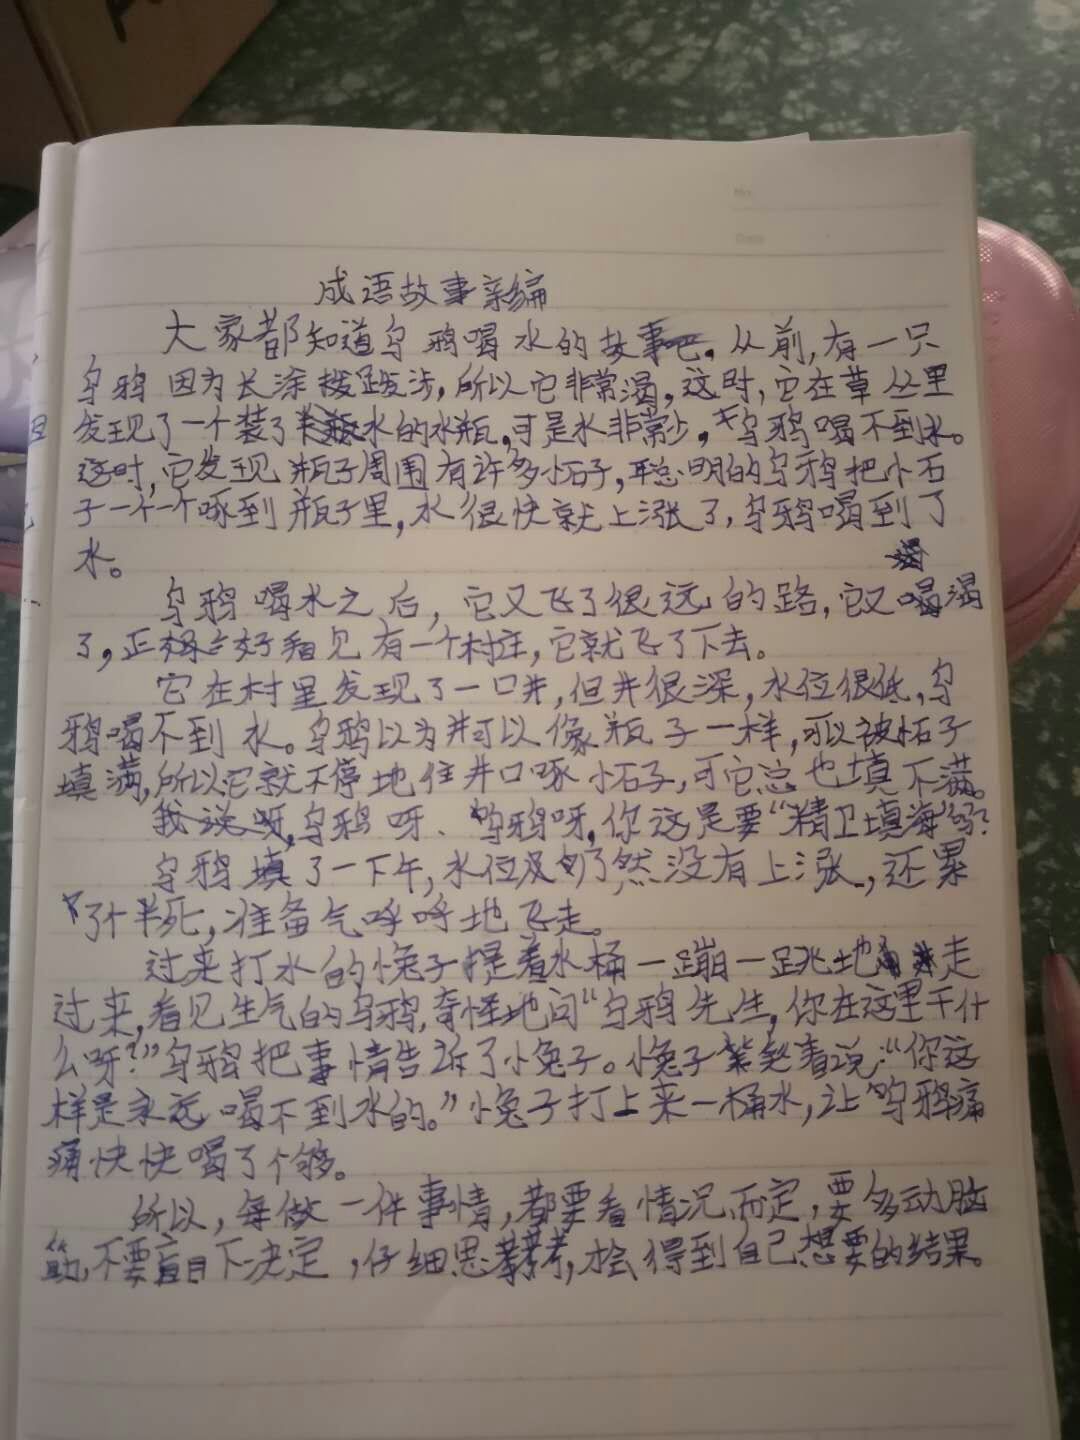 成语故事新编
大家都知道乌鸦喝水的故事吧。从前,有一只
乌鸦因为长涂拨跋涉,所以它非常渴。这时,它在草丛里
发现了一个装了水的水瓶,可是水非常少,乌鸦喝不到水。
这时,它发现瓶子周围有许多小石子,聪明的乌鸦把小石
子一个一个啄到瓶子里,水很快就上涨了,乌鸦喝到了
水。
乌鸦喝水之后,它又飞了很远的路,它又喝渴
了,正好看见有一个村庄,它就飞了下去。
它在村里发现了一口井,但井很深,水位很低,乌
鸦喝不到水。乌鸦以为井可以像瓶子一样,可以被小石子
填满,所以它就不停地往井口啄小石子,可它总也填不满。
我说呀,乌鸦呀、乌鸦呀,你这是要“精卫填海”吗?
乌鸦填了一下午,水位仍然没有上涨,还累
了个半死,准备气呼呼地飞走。
过来打水的小兔子提着水桶一蹦一跳地走
过来,看见生气的乌鸦,奇怪地问“乌鸦先生,你在这里干什
么呀?”乌鸦把事情告诉了小兔子。小兔子笑着说:“你这
样是永远喝不到水的。”小兔子打上来一桶水,让乌鸦痛
痛快快喝了个够。
所以,每做一件事情,都要看情况而定,要多动脑
筋,不要盲目下决定,仔细思考,才会得到自己想要的结果。
No.
Date